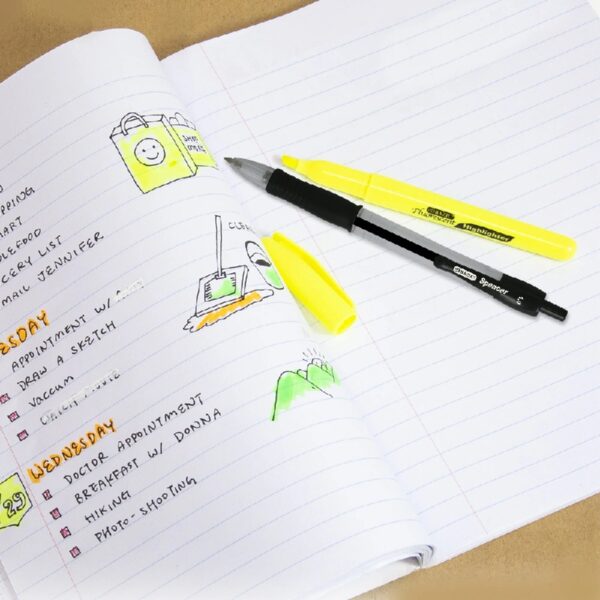 PPING
MART
LEFOOD
CERY LIST
MAIL JENNIFER
ESDAY
APPOINTMENT W/
DRAW A SKETCH
VACCUM
WEDNESDAY
DOCTOR APPOINTMENT
BREAKFAST W/ DONNA
HIKING
PHOTO-SHOOTING
29
CLEA
Fluorescent
Highlighter
Spencer